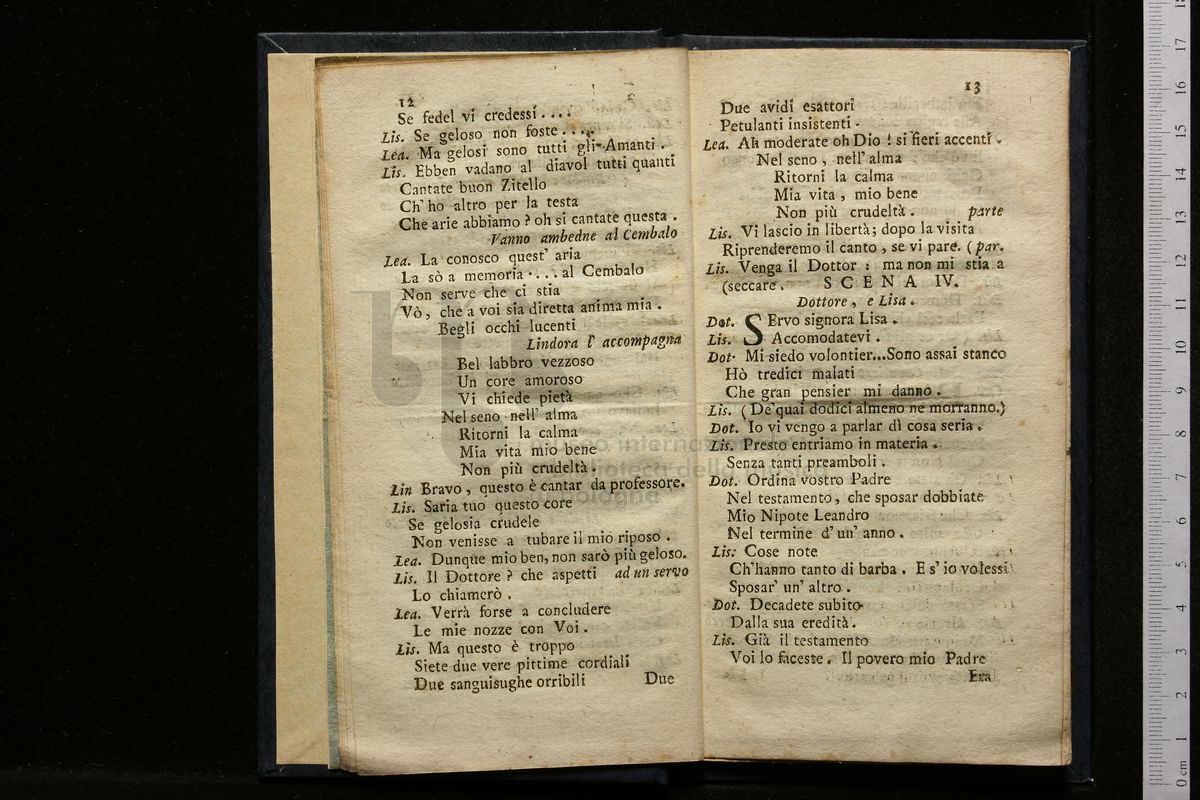 12
Se fedel vi credessi . . . .
Lis. Se geloso non foste . . . .
Lea. Ma gelosi sono tutti gli Amanti .
Lis. Ebben vadano al diavol tutti quanti
Cantate buon Zitello
Ch' ho altro per la testa
Che arie abbiamo ? oh si cantate questa .
Vanno ambedne al Cembalo
Lea. La conosco quest' aria
La sò a memoria . . . . al Cembalo
Non serve che ci stia
Vò , che a voi sia diretta anima mia .
Begli occhi lucenti
Lindora l' accompagna
Bel labbro vezzoso
Un core amoroso
Vi chiede pietà
Nel seno nell' alma
Ritorni la calma
Mia vita mio bene
Non più crudeltà .
Lin Bravo , questo è cantar da professore.
Lis. Saria tuo questo core
Se gelosia crudele
Non venisse a tubare il mio riposo .
Lea. Dunque mio ben, non sarò più geloso.
Lis. Il Dottore ? che aspetti ad un servo
Lo chiamerò .
Lea. Verrà forse a concludere
Le mie nozze con Voi .
Lis. Ma questo è troppo
Siete due vere pittime cordiali
Due sanguisughe orribili
Due
13
Due avidi esattori
Petulanti insistenti .
Lea. Ah moderate oh Dio ! si fieri accenti .
Nel seno , nell' alma
Ritorni la calma
Mia vita , mio bene
Non più crudeltà . parte
Lis. Vi lascio in libertà; dopo la visita
Riprenderemo il canto , se vi pare. ( par.
Lis. Venga il Dottor : ma non mi stia a
(seccare . SCENA IV.
Dottore , e Lisa .
Dot. SErvo signora Lisa .
Lis. Accomodatevi .
Dot. Mi siedo volontier...Sono assai stanco
Hò tredici malati
Che gran pensier mi danno .
Lis. ( De'quai dodici almeno ne morranno.)
Dot. Io vi vengo a parlar dì cosa seria .
Lis. Presto entriamo in materia .
Senza tanti preamboli .
Dot. Ordina vostro Padre
Nel testamento, che sposar dobbiate
Mio Nipote Leandro
Nel termine d' un' anno .
Lis: Cose note
Ch'hanno tanto di barba . E s' io volessi
Sposar' un' altro .
Dot. Decadete subito
Dalla sua eredità .
Lis. Già il testamento
Voi lo faceste . Il povero mio Padre
Era
museo internazionale
biblioteca della musica
di bologna
0 cm
1
2
3
4
5
6
7
8
9
10
11
12
13
14
15
16
17
18